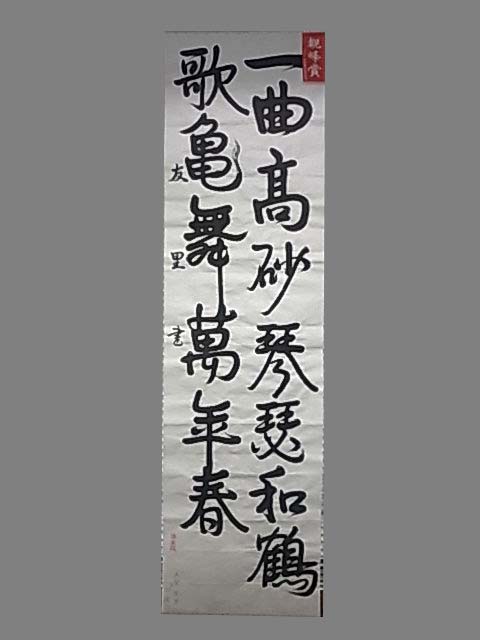 観峰賞
一曲高砂琴瑟和鶴
歌亀舞萬年春
友里書